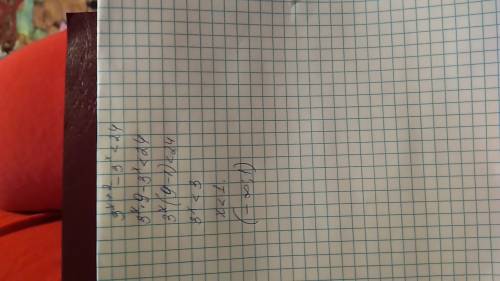 3^{x+2} - 3^x < 24
3^x · 9 - 3^x < 24
3^x (9 - 1) < 24
3^x < 3
x < 1.
(-∞; 1)